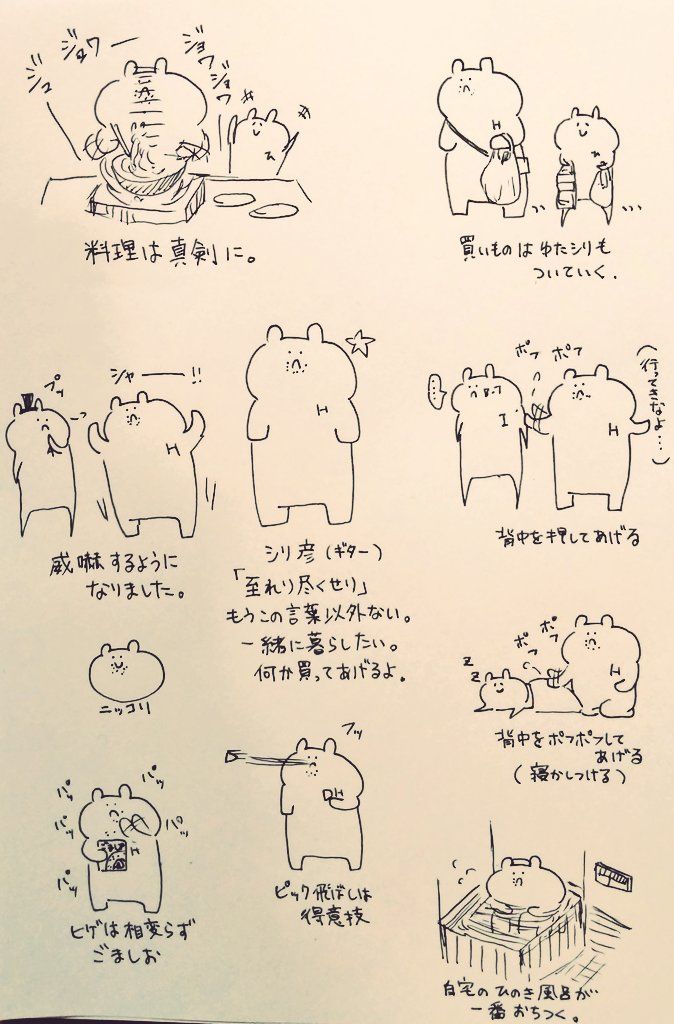 ジュ
ジョワー
ジョワ
ジョワ
ひ
料理は真剣に。
H
買いものは ゆたシリも
ついていく.
プッ
シャーーー!!
H
威嚇するように
なりました。
H
シリ彦(ギター)
「至れり尽くせり」
もうこの言葉以外ない。
一緒に暮らしたい。
何か買ってあげるよ。
ポフ ポフ
(行ってきなよ…)
I
H
背中を押してあげる
ニッコリ
z
z
ポフ
ポフ
H
背中をポフポフして
あげる
(寝かしつける)
パッ
パッ
パッ
パッ
パッ
パッ
H
ヒゲは相変らず
ごましお
フッ
H
ピック飛ばしは
得意技
自宅のひのき風呂が
一番おちつく。